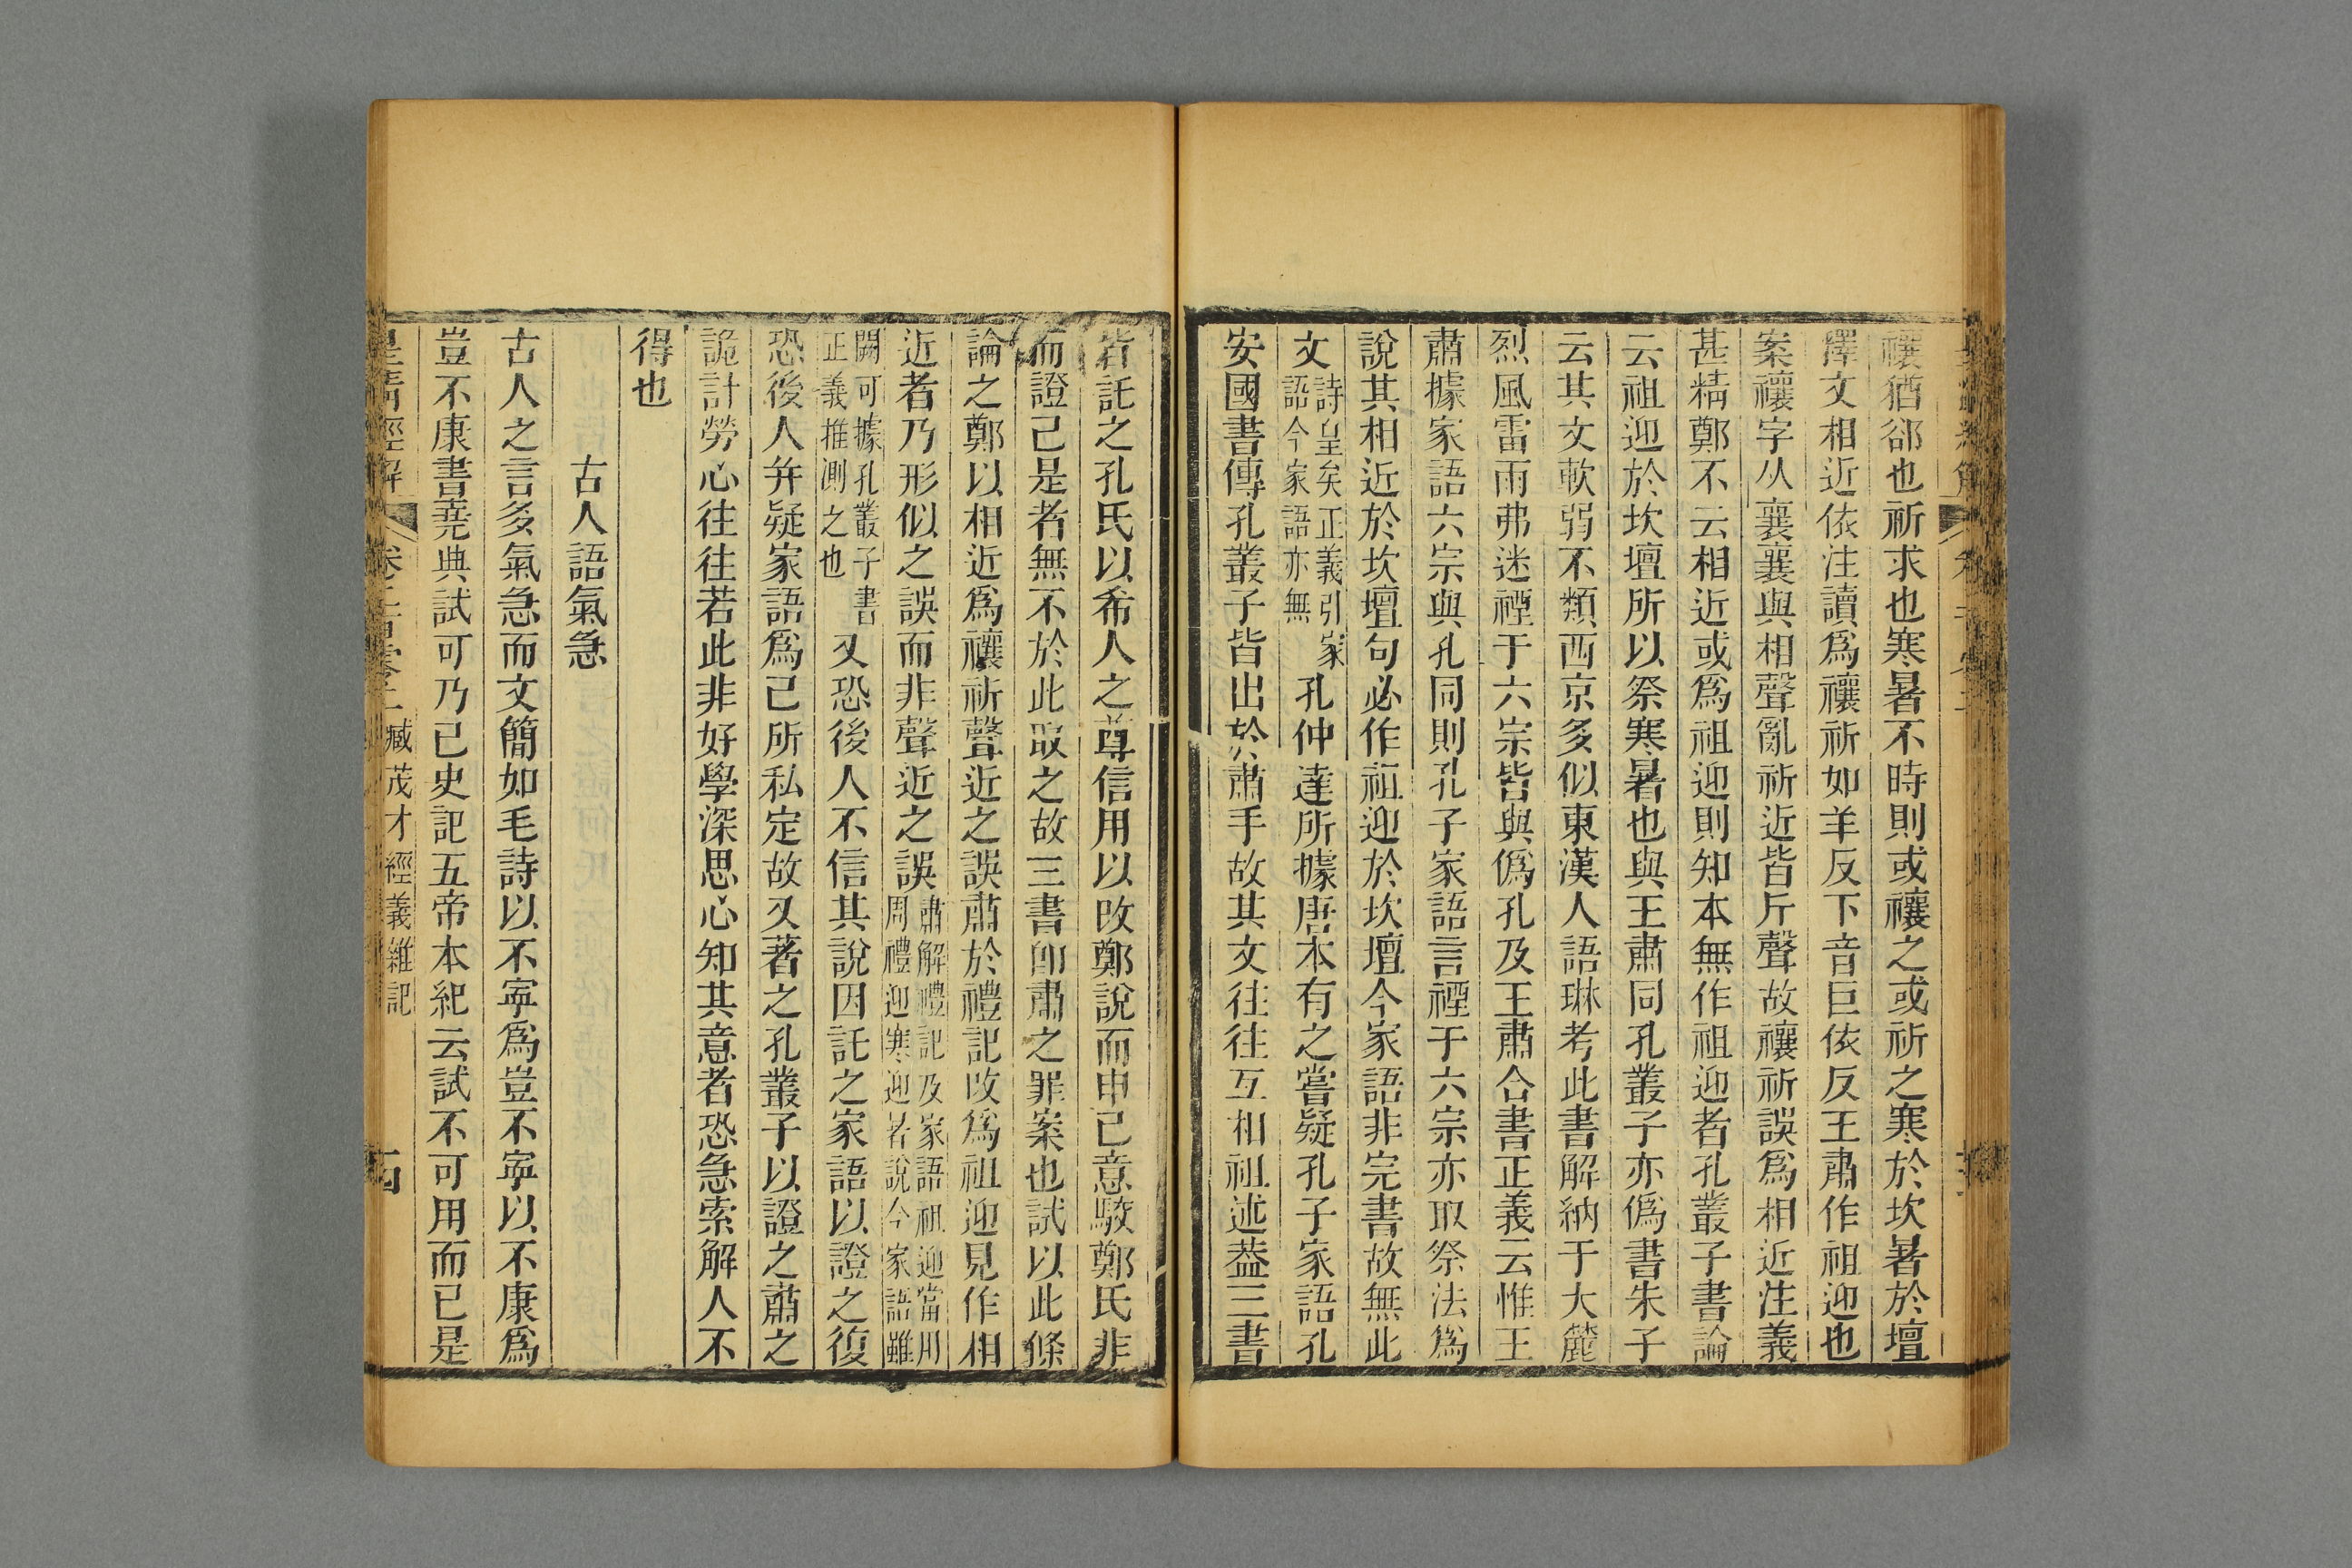 禳猶郤也祈求也寒暑不時則或禳之或祈之寒於坎暑於壇
釋文相近依注讀爲禳祈如羊反下音巨依反王肅作祖迎也
案禳字从襄襄與相聲亂祈近皆斤聲故禳祈誤爲相近注義
甚精鄭不云相近或爲祖迎則知本無作祖迎者孔叢子書論
云祖迎於坎壇所以祭寒暑也與王肅同孔叢子亦僞書朱子
云其文軟弱不類西京多似東漢人語琳考此書解納于大麓
烈風雷雨弗迷禋于六宗皆與僞孔及王肅合書正義云惟王
肅據家語六宗與孔同則孔子家語言禋于六宗亦取祭法爲
說其相近於坎壇句必作祖迎於坎壇今家語非完書故無此
文詩皇矣正義引家語今家語亦無孔仲達所據唐本有之嘗疑孔子家語孔
安國書傳孔叢子皆出於肅手故其文往往互相祖述葢三書
皆託之孔氏以希人之尊信用以攺鄭說而申己意駮鄭氏非
而證己是者無不於此取之故三書卽肅之罪案也試以此條
論之鄭以相近爲禳祈聲近之誤肅於禮記攺爲祖迎見作相
近者乃形似之誤而非聲近之誤肅解禮記及家語祖迎當用周禮迎寒迎暑說今家語雖
闕可據孔叢子書正義推測之也又恐後人不信其說因託之家語以證之復
恐後人并疑家語爲己所私定故又著之孔叢子以證之肅之
詭計勞心往往若此非好學深思心知其意者恐急索解人不
得也
古人語氣急
古人之言多氣急而文簡如毛詩以不寧爲豈不寧以不康爲
豈不康書堯典試可乃已史記五帝本紀云試不可用而已是
皇淸經解 卷二百零二 臧茂才經義雜記 西